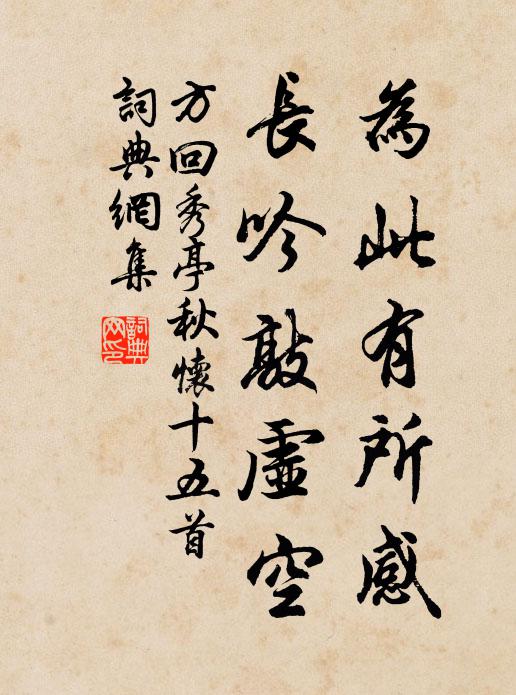 為此有所感
長吟敲虛空
方回秀亭秋懷十五首
詞典網集
詞典網印